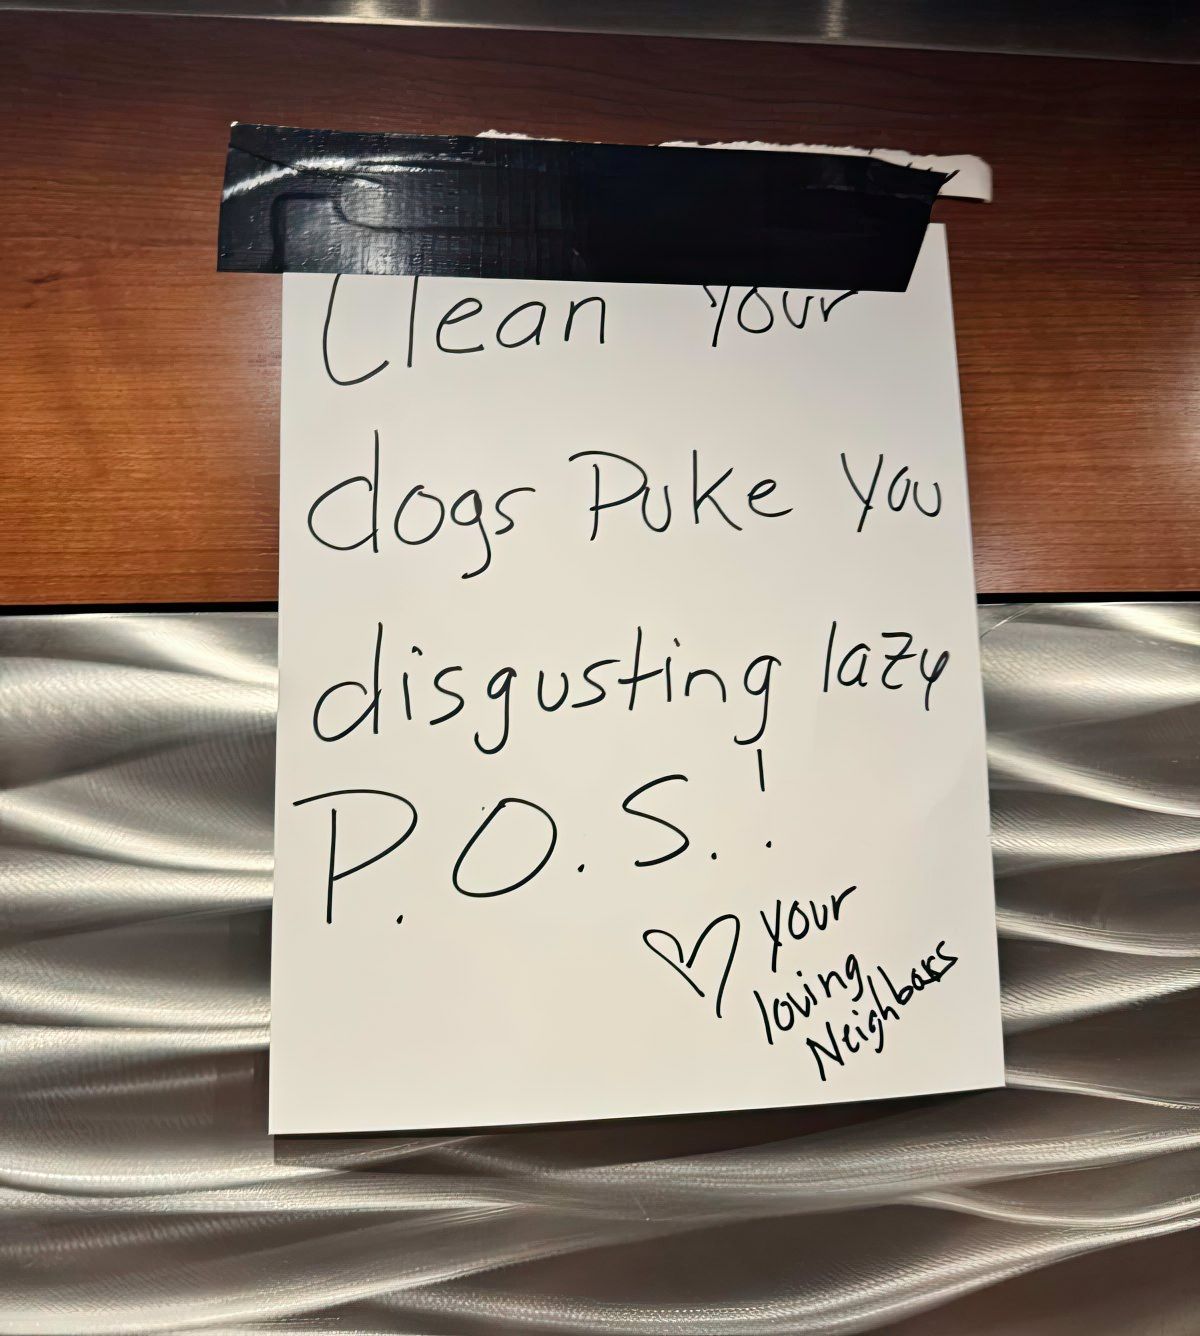 Clean your
dogs Puke You
disgusting lazy
P.O.S.!
♡ your
loving
Neighbors